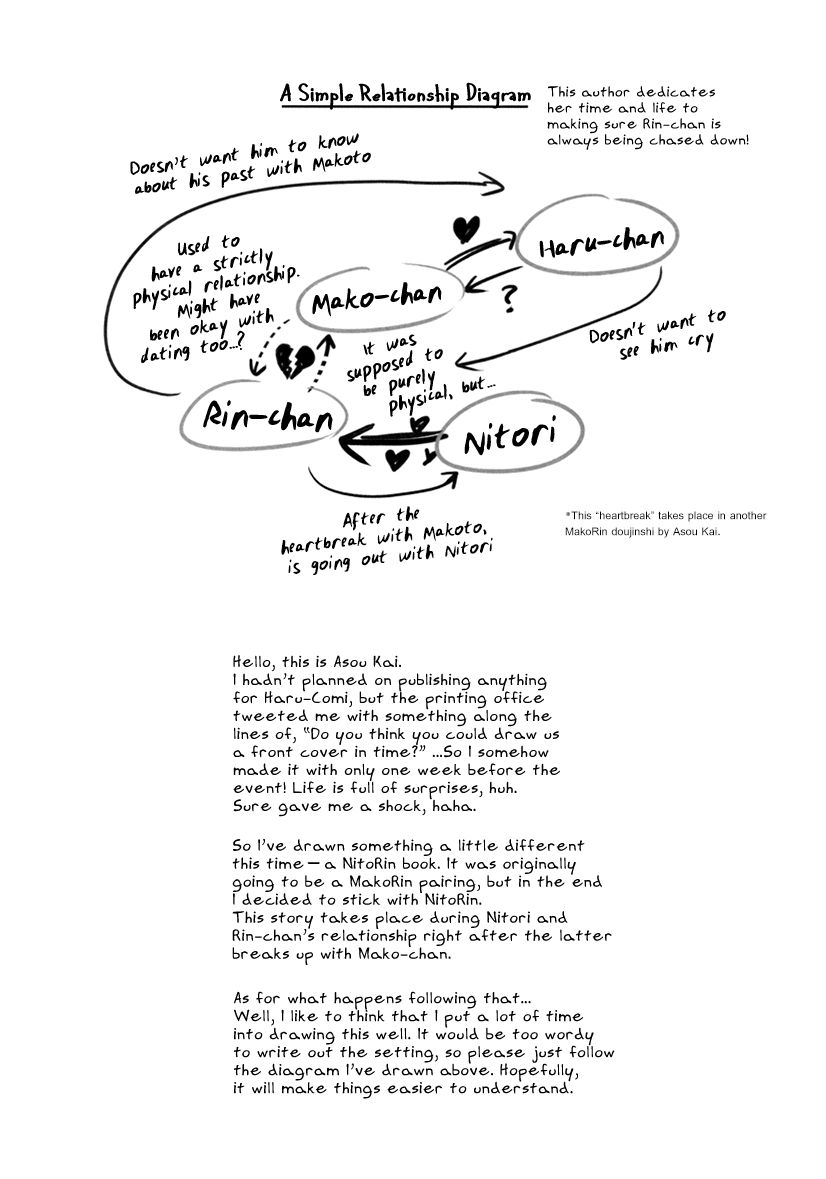 A Simple Relationship Diagram
This author dedicates
her time and life to
making sure Rin-chan is
always being chased down!
Doesn't want him to know
about his past with Makoto
Haru-chan
Used to
have a strictly
physical relationship.
Might have
been okay with
dating too...?
Mako-chan
?
Doesn't want to
see him cry
It was
supposed to
be purely
physical, but...
Rin-chan
Nitori
After the
heartbreak with Makoto,
is going out with Nitori
*This “heartbreak” takes place in another
MakoRin doujinshi by Asou Kai.
Hello, this is Asou Kai.
I hadn't planned on publishing anything
for Haru-Comi, but the printing office
tweeted me with something along the
lines of, “Do you think you could draw us
a front cover in time?” ...So I somehow
made it with only one week before the
event! Life is full of surprises, huh.
Sure gave me a shock, haha.
So I've drawn something a little different
this time — a NitoRin book. It was originally
going to be a MakoRin pairing, but in the end
I decided to stick with NitoRin.
This story takes place during Nitori and
Rin-chan's relationship right after the latter
breaks up with Mako-chan.
As for what happens following that...
Well, I like to think that I put a lot of time
into drawing this well. It would be too wordy
to write out the setting, so please just follow
the diagram I've drawn above. Hopefully,
it will make things easier to understand.